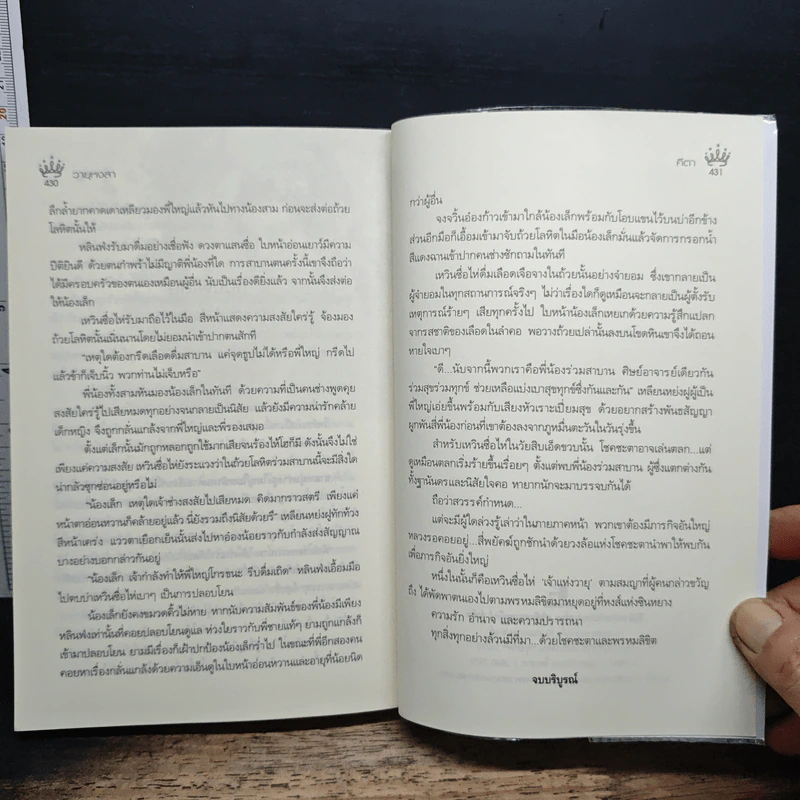 430
วายุหงสา
ลึกล้ำยากคาดเดาเหลียวมองพี่ใหญ่แล้วหันไปทางน้องสาม ก่อนจะส่งต่อถ้วย
โลหิตนั้นให้
หลินฟงรับมาดื่มอย่างเชื่อฟัง ดวงตาแสนซื่อ ใบหน้าอ่อนเยาว์มีความ
ปีติยินดี ด้วยตนกำพร้าไม่มีญาติพี่น้องที่ใด การสาบานตนครั้งนี้เขาจึงถือว่า
ได้มีครอบครัวของตนเองเหมือนผู้อื่น นับเป็นเรื่องดียิ่งแล้ว จากนั้นจึงส่งต่อ
ให้น้องเล็ก
เหวินซื่อไห่รับมาถือไว้ในมือ สีหน้าแสดงความสงสัยใคร่รู้ จ้องมอง
ถ้วยโลหิตนั้นเนิ่นนานโดยไม่ยอมนำเข้าปากตนสักที
"เหตุใดต้องกรีดเลือดดื่มสาบาน แค่จุดธูปไม่ได้หรือพี่ใหญ่ กรีดไป
แล้วข้าก็เจ็บนิ้ว พวกท่านไม่เจ็บหรือ"
พี่น้องทั้งสามหันมองน้องเล็กในทันที ด้วยความที่เป็นคนช่างพูดคุย
สงสัยใคร่รู้ไปเสียหมดทุกอย่างจนกลายเป็นนิสัย แล้วยังมีความน่ารักคล้าย
เด็กหญิง จึงถูกกลั่นแกล้งจากพี่ใหญ่และพี่รองเสมอ
ตั้งแต่เล็กนั้นมักถูกหลอกถูกใช้มากเสียจนร้องไห้โฮก็มี ดังนั้นจึงไม่ใช่
เพียงแค่ความสงสัย เหวินซื่อไห่ยังระแวงว่าในถ้วยโลหิตร่วมสาบานนี้จะมีสิ่งใด
น่ากลัวซุกซ่อนอยู่หรือไม่
"น้องเล็ก เหตุใดเจ้าช่างสงสัยไปเสียหมด คิดมากราวสตรี เพียงแค่
หน้าตาอ่อนหวานก็คล้ายอยู่แล้ว นี่ยังรวมถึงนิสัยด้วยรึ" เหลียนหย่งฝูทักท้วง
สีหน้าเคร่ง แววตาเยือกเย็นนั้นส่งไปหาอ๋องน้อยราวกับกำลังส่งสัญญาณ
บางอย่างบอกกล่าวกันอยู่
"น้องเล็ก เจ้ากำลังทำให้พี่ใหญ่โกรธนะ รีบดื่มเถิด" หลินฟงเอื้อมมือ
ไปตบบ่าเหวินซื่อไห่เบาๆ เป็นการปลอบโยน
น้องเล็กยังคงขมวดคิ้วไม่หาย หากนับความสัมพันธ์ของพี่น้องมีเพียง
หลินฟงเท่านั้นที่คอยปลอบโยนดูแล ห่วงใยราวกับพี่ชายแท้ๆ ยามถูกแกล้งก็
เข้ามาปลอบโยน ยามมีเรื่องก็เฝ้าปกป้องน้องเล็กร่ำไป ในขณะที่พี่อีกสองคน
คอยหาเรื่องกลั่นแกล้งด้วยความเอ็นดูในใบหน้าอ่อนหวานและอายุที่น้อยนิด
คีตา
431
กว่าผู้อื่น
จงจวิ้นอ๋องก้าวเข้ามาใกล้น้องเล็กพร้อมกับโอบแขนไว้บนบ่าอีกข้าง
ส่วนอีกมือก็เอื้อมเข้ามาจับถ้วยโลหิตในมือน้องเล็กมั่นแล้วจัดการกรอกน้ำ
สีแดงฉานเข้าปากคนช่างซักถามในทันที
เหวินซื่อไห่ดื่มเลือดเจือจางในถ้วยนั้นอย่างจำยอม ซึ่งเขากลายเป็น
ผู้จำยอมในทุกสถานการณ์จริงๆ ไม่ว่าเรื่องใดก็ดูเหมือนจะกลายเป็นผู้ตั้งรับ
เหตุการณ์ร้ายๆ เสียทุกครั้งไป ใบหน้าน้องเล็กเหยเกด้วยความรู้สึกแปลก
จากรสชาติของเลือดในลำคอ พอวางถ้วยเปล่านั้นลงบนโขดหินเขาจึงได้ถอน
หายใจเบาๆ
"ดี...นับจากนี้พวกเราคือพี่น้องร่วมสาบาน ศิษย์อาจารย์เดียวกัน
ร่วมสุขร่วมทุกข์ ช่วยเหลือแบ่งเบาสุขทุกข์ซึ่งกันและกัน" เหลียนหย่งฝูผู้เป็น
พี่ใหญ่เอ่ยขึ้นพร้อมกับเสียงหัวเราะเปี่ยมสุข ด้วยอยากสร้างพันธสัญญา
ผูกพันสี่พี่น้องก่อนที่เขาต้องลงจากภูหมื่นตะวันในวันรุ่งขึ้น
สำหรับเหวินซื่อไห่ในวัยสิบเอ็ดขวบนั้น โชคชะตาอาจเล่นตลก...แต่
ดูเหมือนตลกเริ่มร้ายขึ้นเรื่อยๆ ตั้งแต่พบพี่น้องร่วมสาบาน ผู้ซึ่งแตกต่างกัน
ทั้งฐานันดรและนิสัยใจคอ ทายากนักจะมาบรรจบกันได้
ถือว่าสวรรค์กำหนด...
แต่จะมีผู้ใดล่วงรู้เล่าว่าในภายภาคหน้า พวกเขาต้องมีภารกิจอันใหญ่
หลวงรอคอยอยู่...สี่พยัคฆ์ถูกชักนำด้วยวงล้อแห่งโชคชะตานำพาให้พบกัน
เพื่อภารกิจอันยิ่งใหญ่
หนึ่งในนั้นก็คือเหวินซื่อไห่ 'เจ้าแห่งวายุ' ตามสมญาที่ผู้คนกล่าวขวัญ
ถึง ได้พัดพาตนเองไปตามพรหมลิขิตมาหยุดอยู่ที่หงส์แห่งซินหยาง
ความรัก อำนาจ และความปรารถนา
ทุกสิ่งทุกอย่างล้วนมีที่มา...ด้วยโชคชะตาและพรหมลิขิต
จบบริบูรณ์